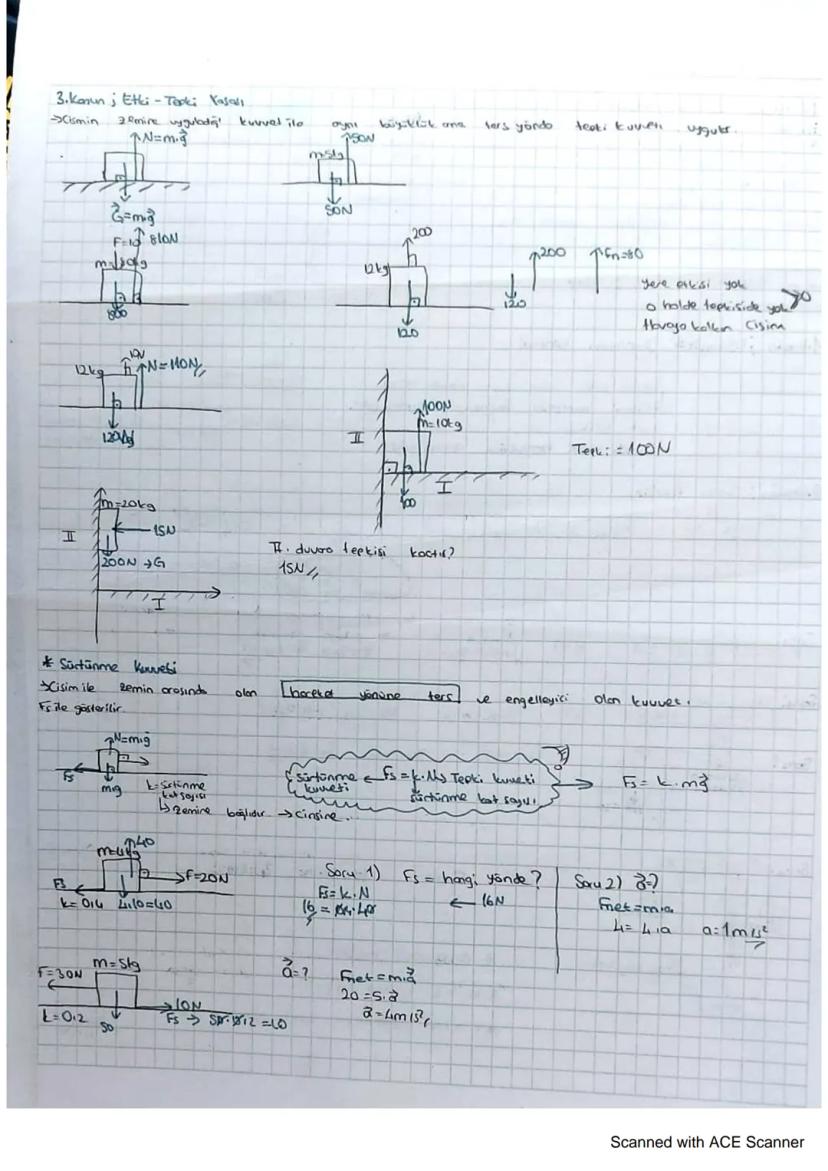 3.Kanun ; Etki - Tepki Yasası
→Cismin zemine uyguladığı kuvvet ile aynı büyüklük ama ters yönde tepki kuvveti uygular.
N=m.g
50N
m=5kg
G=m.g
50N
F=10 810N
m=80kg
800
200
12kg
120
200
120
Fn=80
yere etkisi yok
o halde tepkiside yok
Havaya kalkan cisim
10N
12kg
N=110N
120N
100N
m=10kg
II
I
100
Tepki = 100N
m=20kg
II
15N
200N → G
I
II. duvara tepkisi kaçtır?
15N
* Sürtünme Kuvveti
→Cisim ile zemin arasında olan hareket yönüne ters ve engelleyici olan kuvvet.
Fs ile gösterilir.
N=m.g
Fs
m.g
k=Sürtünme katsayısı
↳ zemine bağlıdır → cinsine.
sürtünme kuvveti ← Fs = k.N → Tepki kuvveti
sürtünme kat sayısı
Fs = k.m.g
m=4kg
40
Fs
F=20N
k=0,4 4.10=40
Soru 1) Fs = hangi yönde?
Fs=k.N
16 = 0,4.40
← 16N
Soru 2) a=?
Fnet=m.a
4= 4.a a=1m/s²
m=5kg
F=30N
10N
k=0,2
50
Fs → 50.0,2 =10
a=?
Fnet=m.a
20=5.a
a=4m/s²
Scanned with ACE Scanner